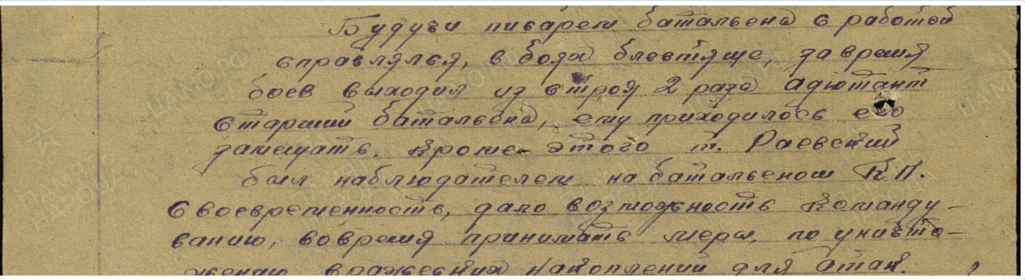 Будучи писарем батальона с работой
справлялся, в боях блестяще, за время
боев выходил из строя 2 раза адютант
старший батальона, ему приходилось его
замещать. Кроме этого т. Раевский
был наблюдателем на батальеном КП.
Своевременность, дало возможность командо-
ванию, вовремя принимать меры, по уничто-
жению вражеских накоплений для атак